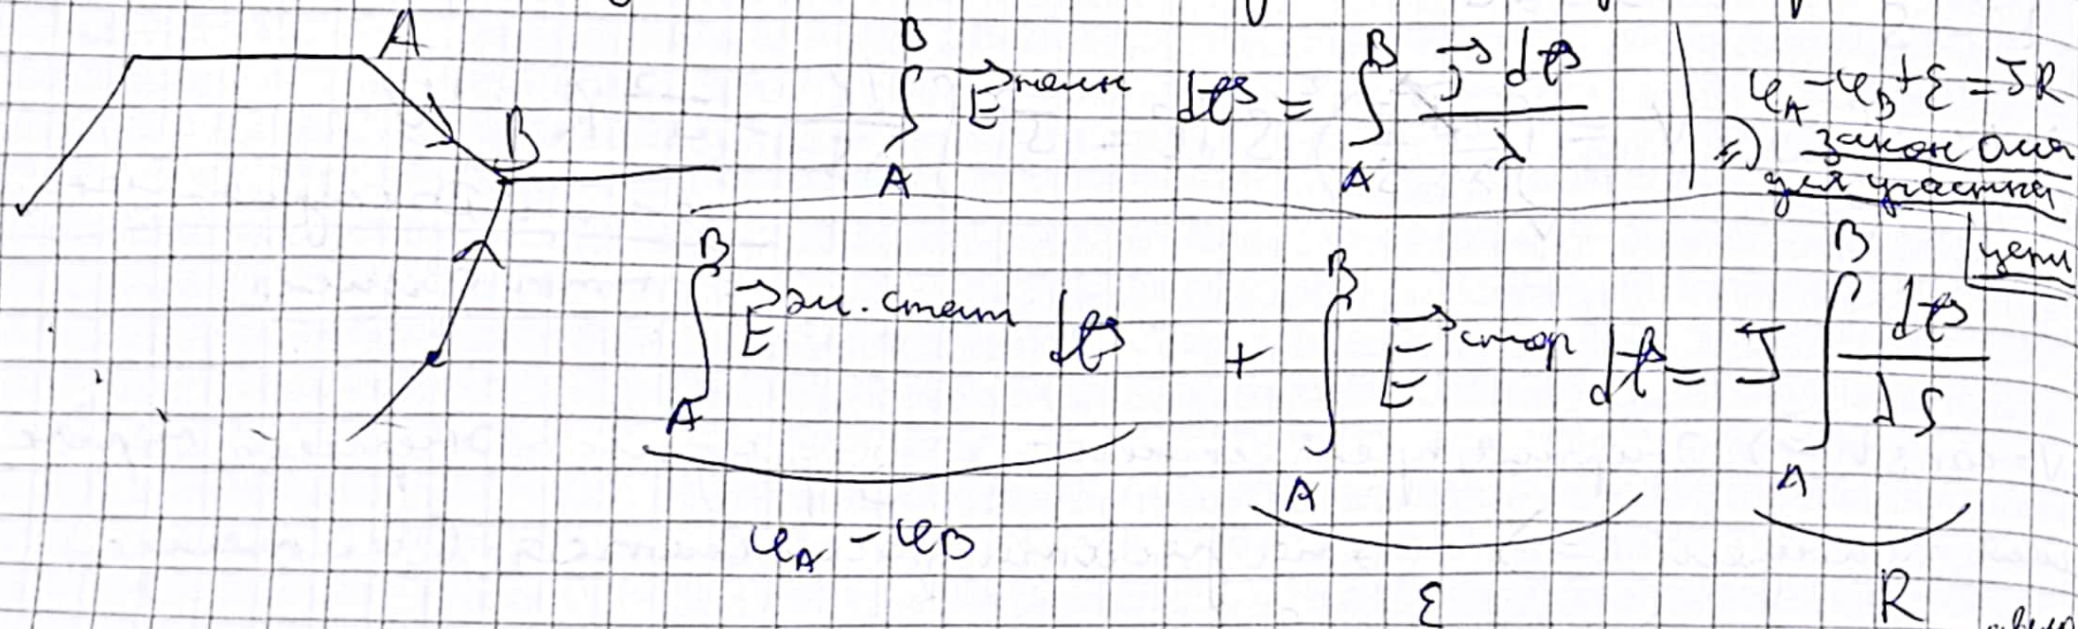 A
B
∫_A^B E⃗^полн dℓ⃗ = ∫_A^B j⃗ dℓ⃗ / λ
φ_A - φ_B + ℰ = JR
⇒) закон Ома
для участка
цепи
∫_A^B E⃗^эл. стат dℓ⃗ + ∫_A^B E⃗^стор dℓ⃗ = J ∫_A^B dℓ⃗ / λS
φ_A - φ_B
ℰ
R